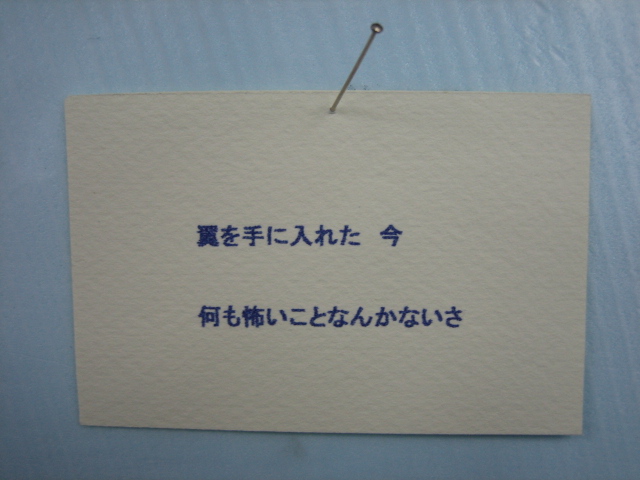 翼を手に入れた　今
何も怖いことなんかないさ